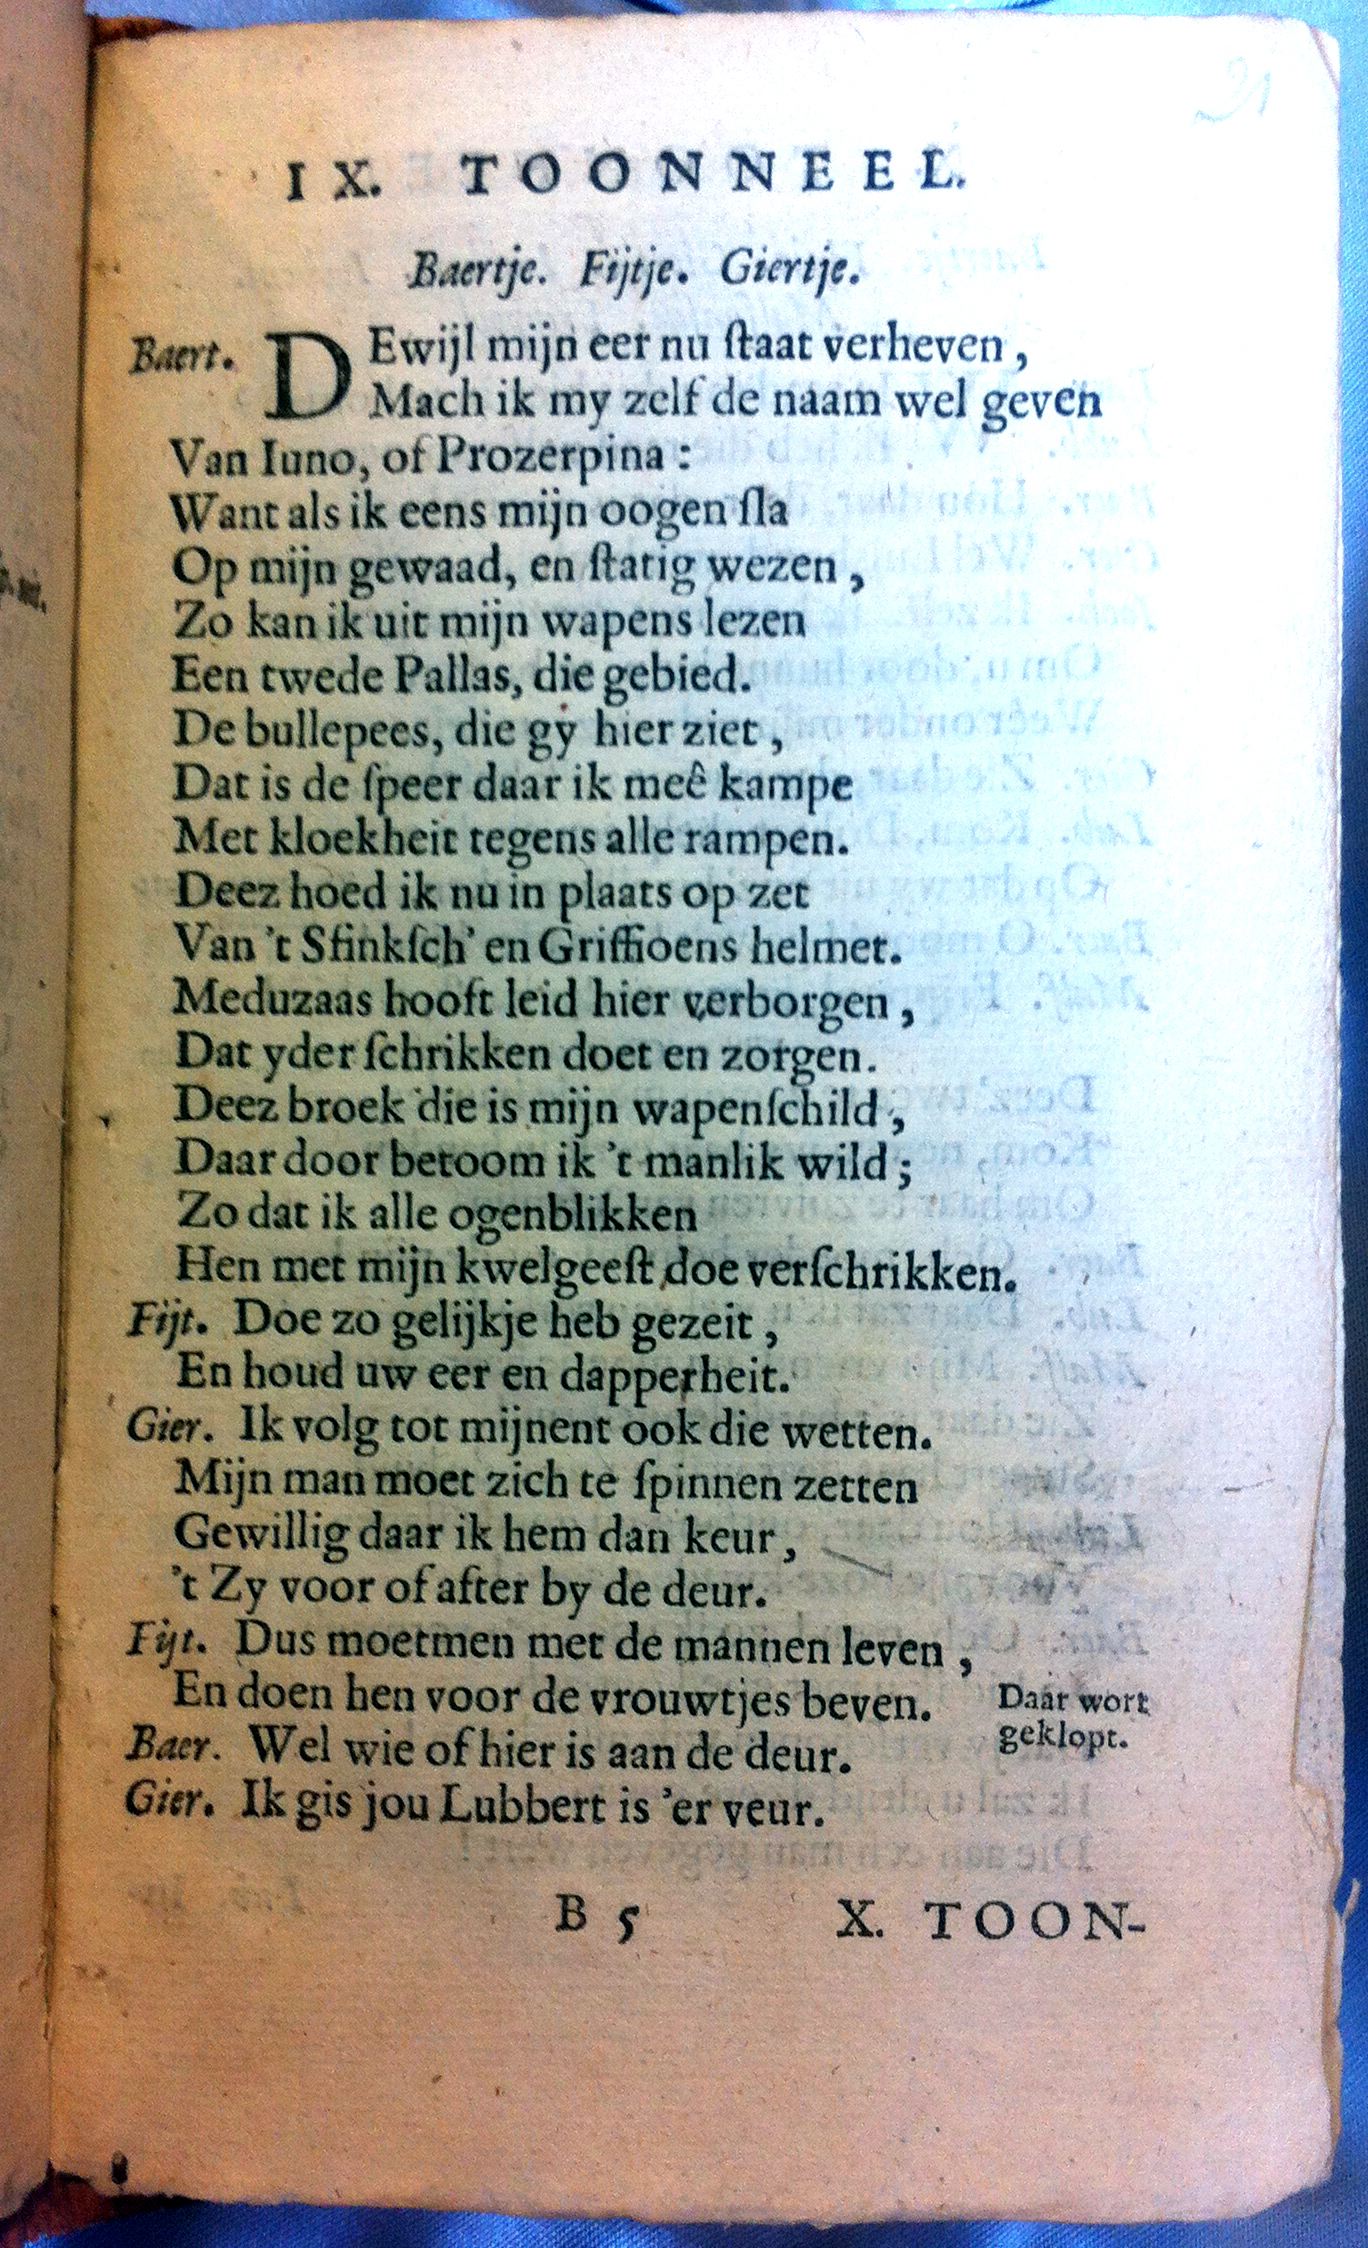 21
IX. TOONNEEL.
Baertje. Fijtje. Giertje.
Baert. DEwijl mijn eer nu ſtaat verheven,
Mach ik my zelf de naam wel geven
Van Iuno, of Prozerpina:
Want als ik eens mijn oogen ſla
Op mijn gewaad, en ſtatig wezen,
Zo kan ik uit mijn wapens lezen
Een twede Pallas, die gebied.
De bullepees, die gy hier ziet,
Dat is de ſpeer daar ik meê kampe
Met kloekheit tegens alle rampen.
Deez hoed ik nu in plaats op zet
Van 't Sfinkſch' en Griffioens helmet.
Meduzaas hooft leid hier verborgen,
Dat yder ſchrikken doet en zorgen.
Deez broek die is mijn wapenſchild,
Daar door betoom ik 't manlik wild;
Zo dat ik alle ogenblikken
Hen met mijn kwelgeeſt doe verſchrikken.
Fijt. Doe zo gelijkje heb gezeit,
En houd uw eer en dapperheit.
Gier. Ik volg tot mijnent ook die wetten.
Mijn man moet zich te ſpinnen zetten
Gewillig daar ik hem dan keur,
't Zy voor of after by de deur.
Fijt. Dus moetmen met de mannen leven,
En doen hen voor de vrouwtjes beven. Daar wort
geklopt.
Baer. Wel wie of hier is aan de deur.
Gier. Ik gis jou Lubbert is 'er veur.
B 5 X. TOON-